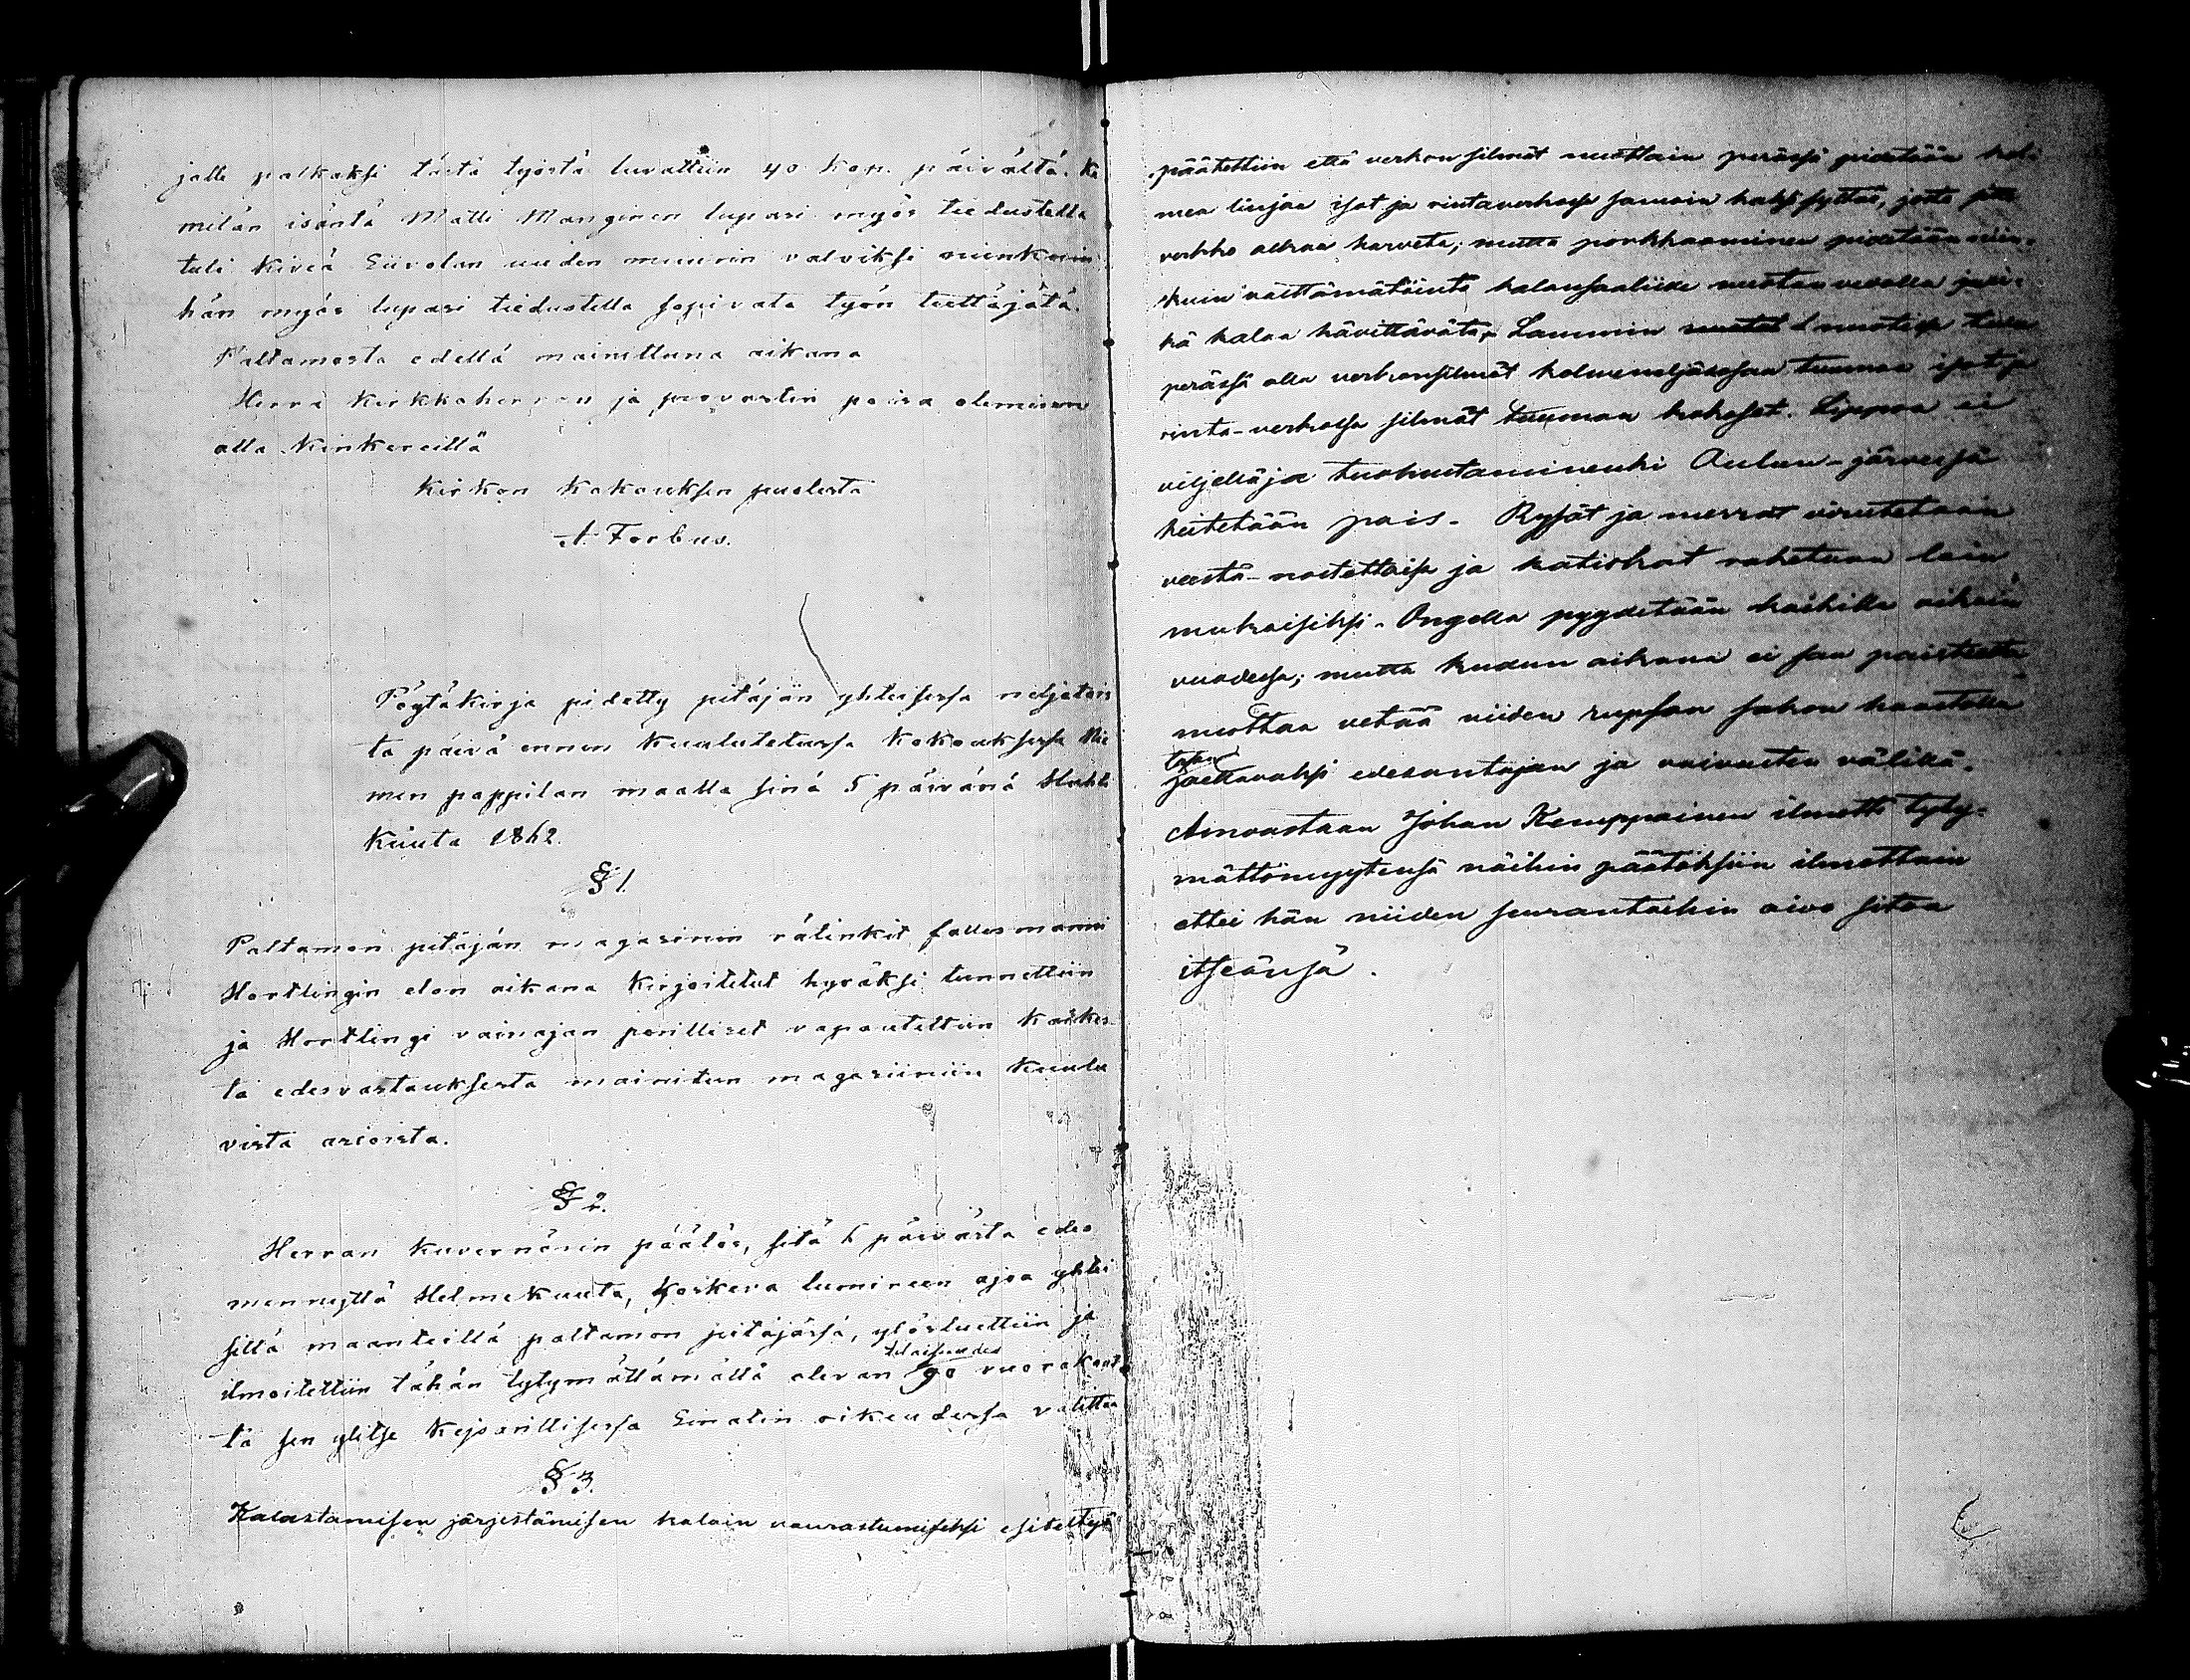 jalle palkaksi tästä työstä luvattiin 40 kop. päivältä. Ki
milän isäntä Matti Manginen lupasi myös tiedustella
tuli kiveä Siivolan uuden muurin valviksi niinkuin
hän myös lupasi tiedustella sopivata työn teettäjätä.
Paltamosta edellä mainittuna aikana
Herra kirkkoherran ja provastin poisa olemisen
alla kinkereillä
Kirkon kokouksen puolesta
A. Forbus.
Pöytäkirja pidetty pitäjän yhteisessä neljätois
ta päivä ennen kuulutetussa kokouksessa Nie
men pappilan maalla sinä 5 päivänä Huhti
kuuta 1862.
§ 1.
Paltamon pitäjän magasinin rätinkit fallesmanni
Hortlingin elon aikana kirjoitetut hyväksi tunnettiin
ja Hortlingi vainajan perilliset vapautettiin kaikes
ta edesvastauksesta mainitun magasiiniin kuulu
vista asioista.
§ 2.
Herran kuvernörin päätös, sitä 6 päivästä edes
mennyttä Helmekuuta, koskeva lumireen ajoa yhtei
sillä maanteillä paltamon pitäjässä, ylösluettiin ja
tilaisuudes
ilmoitettiin tähän tytymättömällä olevan 90 vuorokaut
ta sen ylitse Kejsarillisessa Sinatin oikeudessa valittaa
§ 3.
Kalastamisen järjestämisen kalain vaurastumiseksi esiteltyä
päätettiin että verkon silmät nuottain perässä pidetään kol-
mea linjaa isot ja rintaverkossa samoin kaksi syltää, josta
verkko alkaa harveta; mutta porkkaaminen pidetään niin-
kuin välttämätöintä kalansaaliide nuotan vedolla
kä kalaa hävittävätä. Lammin nuotat
perässä olla verkonsilmät kolmeneljäsosaa tuumaa isot ja
rinta-verkossa silmät tuuman kokoset. Lippoa ei
viljellä ja tuohustaminenki Oulun-järvessä
heitetään pois. Rysät ja merrat virutetaan
vastä-nostettaisa ja katiskat rahetaan lain
mukaisiksi. Ongella pyydetään kaikilla aikain
vuodessa; mutta kudun aikana ei saa paisteelta
nuottaa vetää viiden rupsan sakon haastolla
tasan
jaettavaksi edesantajan ja vaivasten välillä.
Ainoastaan Johan Kemppainen ilmotti tyty-
mättömyytensä näihin päätöksiin ilmottain
ettei hän niiden seurantoihin aivo sitoa
itseänsä.